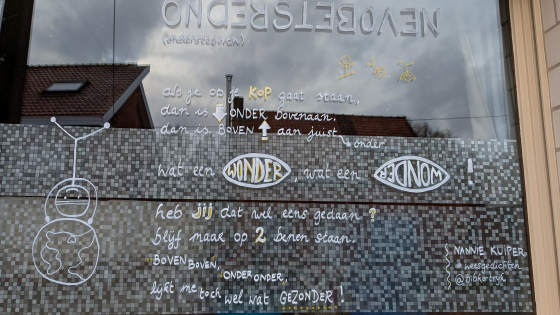 ONDERSTEBOVEN
(ondersteboven)
als je op je KOP gaat staan,
dan is ↓ ONDER bovenaan.
dan is BOVEN ↑ aan juist
onder
wat een WONDER, wat een WONDER !
heb jij dat wel eens gedaan ?
blijf maar op 2 benen staan.
BOVEN BOVEN, ONDER ONDER,
lijkt me toch wel wat GEZONDER !
NANNIE KUIPER
weesgedichten
@bibkortrijk